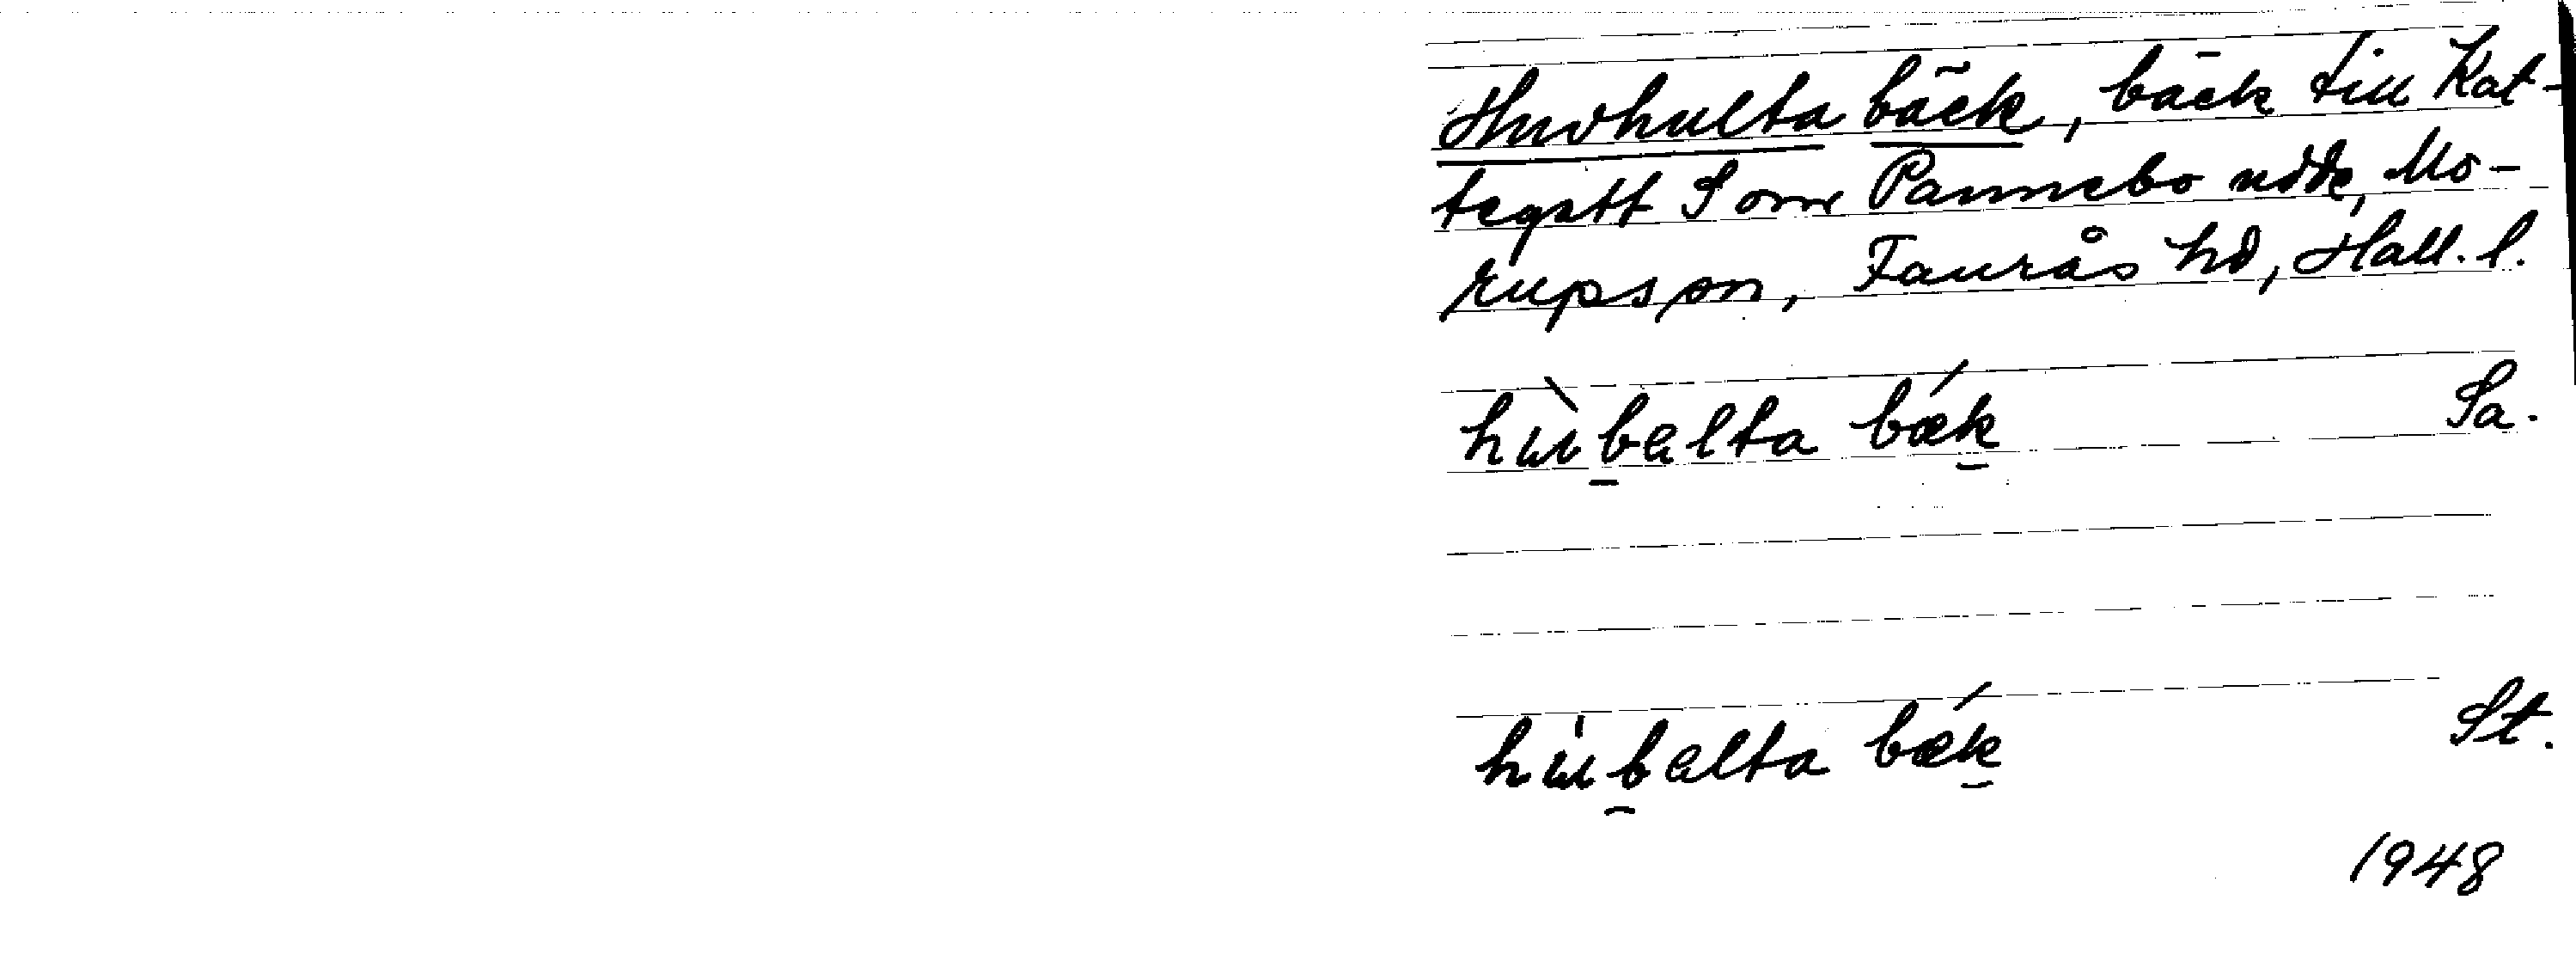 Huvhulta bäck, bäck till Kat-
tegatt S om Pannebo udde, Mo-
rups sn, Faurås hd, Hall. l.
bæk Sa.
bæk St.
1948